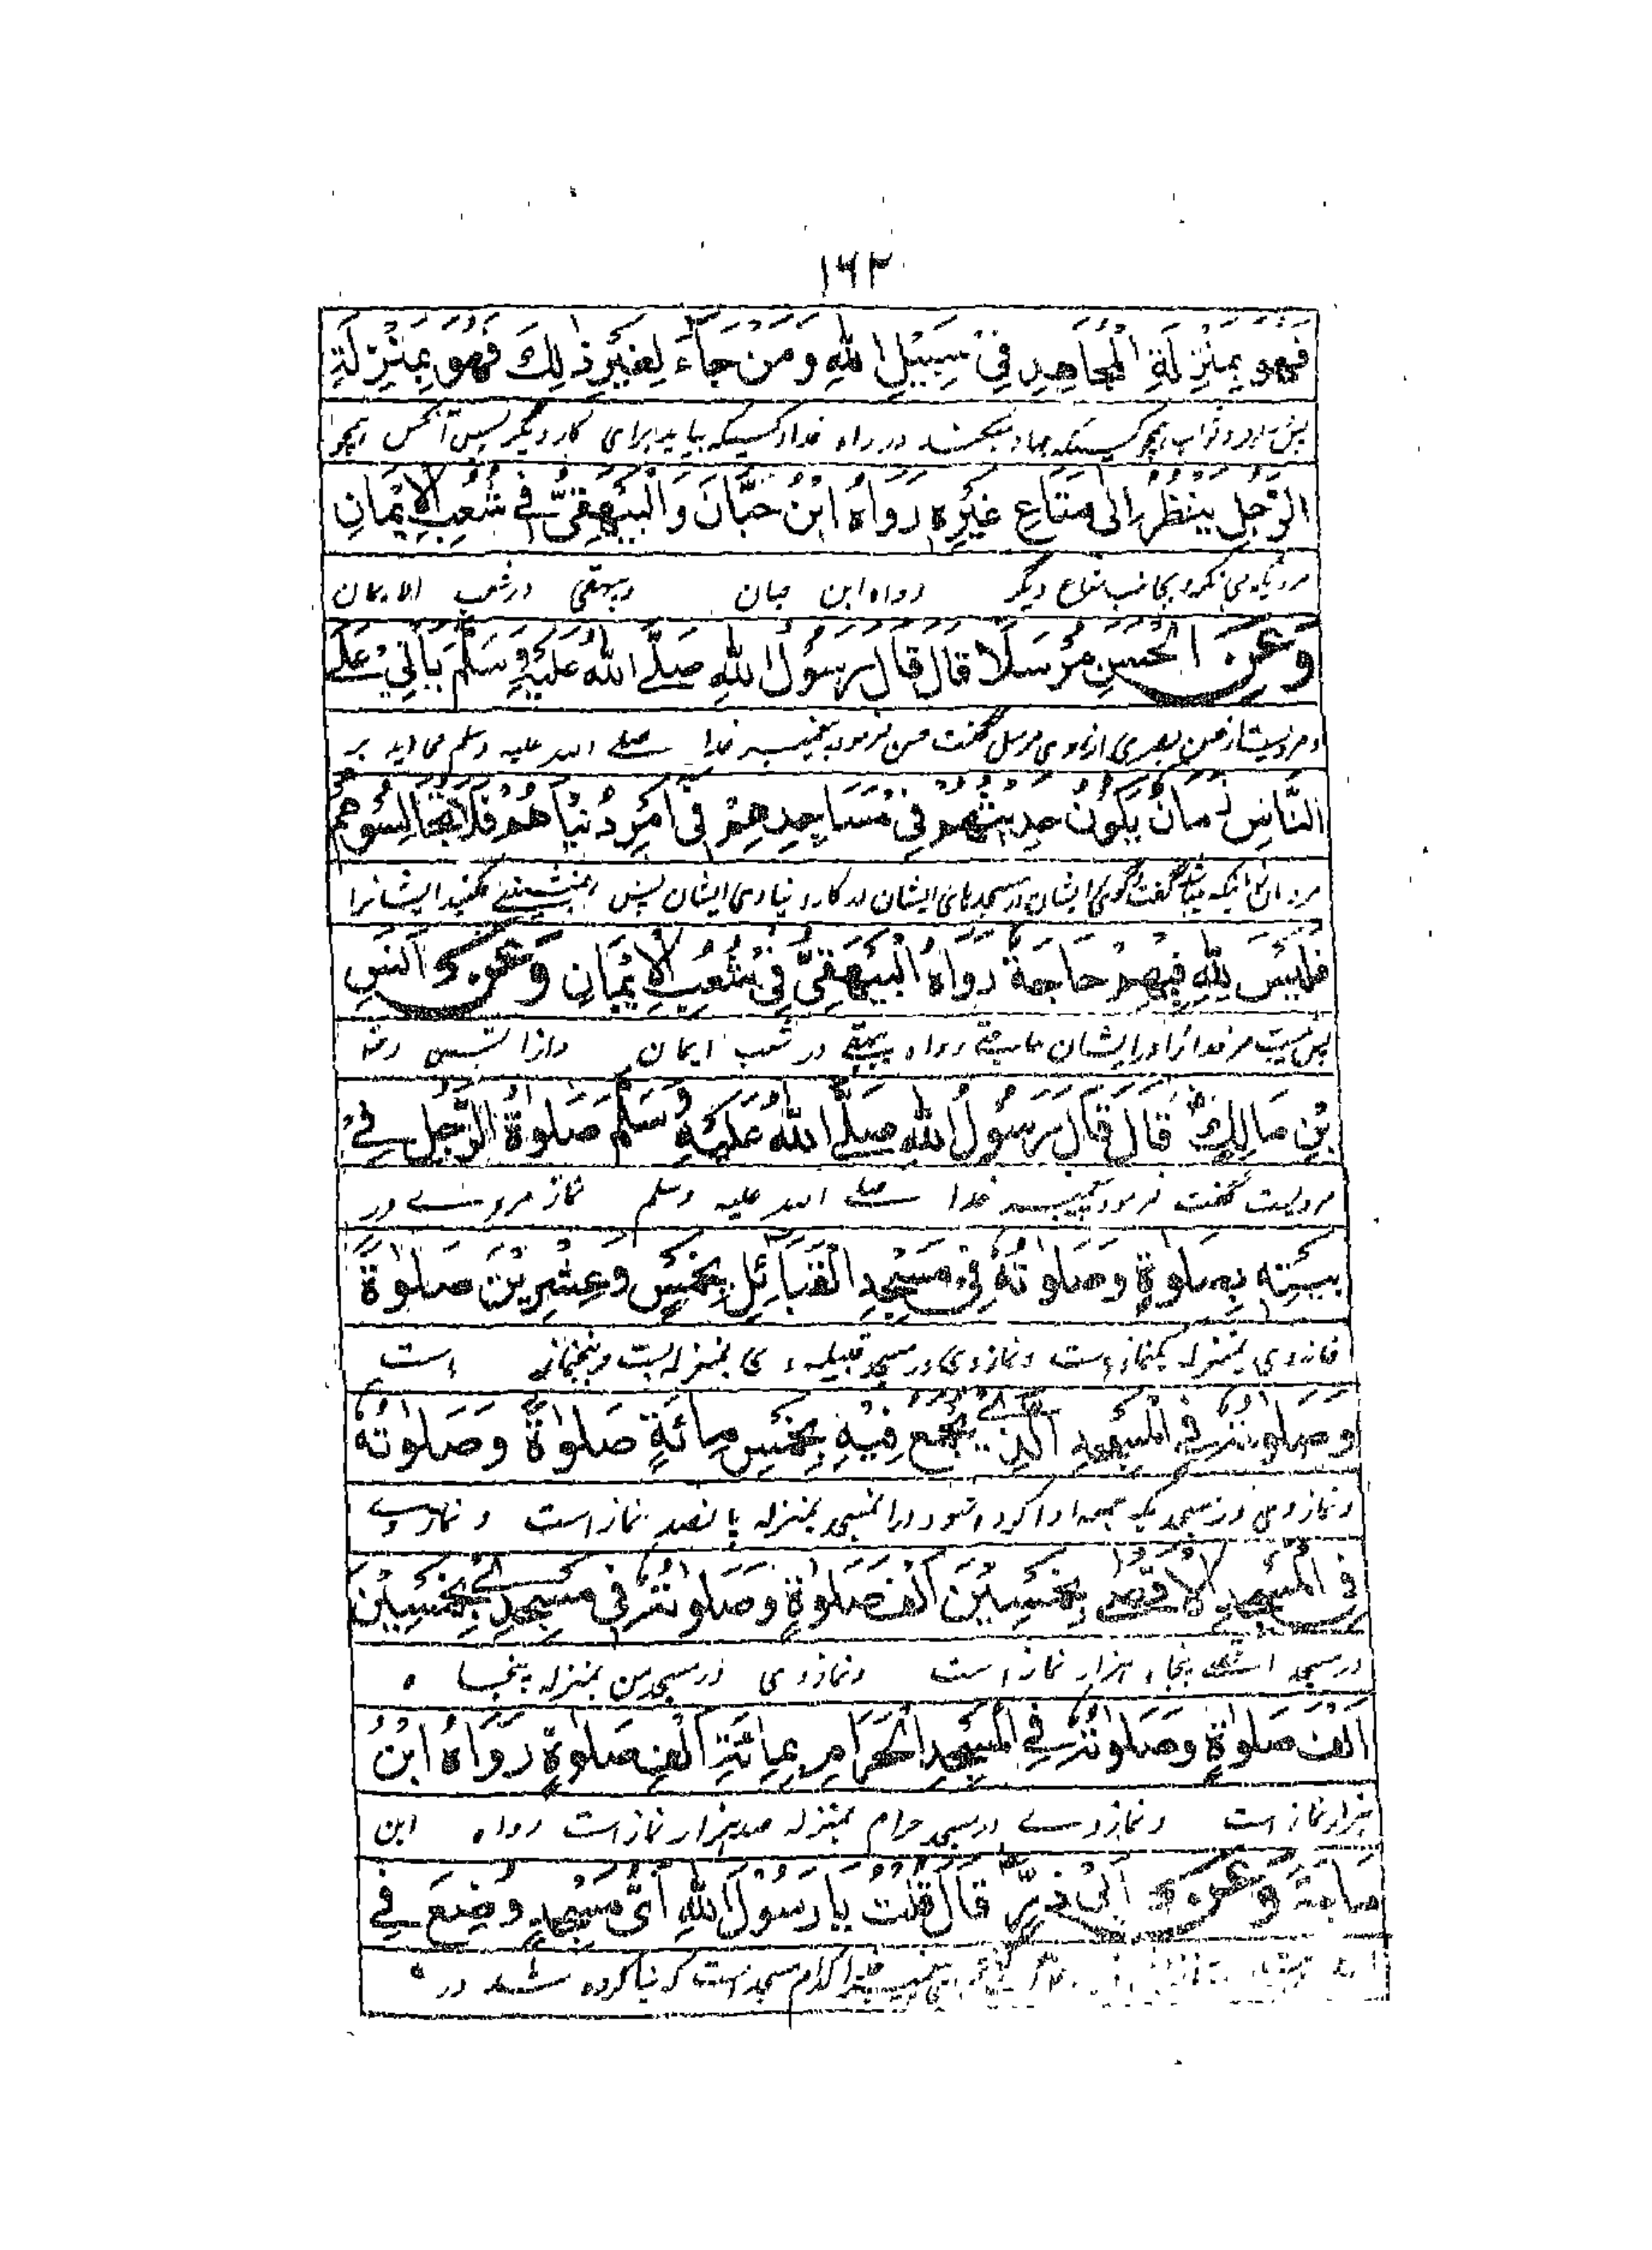 ۱۶۲
فَهُوَ بِمَنْزِلَةِ الْمُجَاهِدِ فِيْ سَبِيْلِ اللهِ وَمَنْ جَاءَ لِغَيْرِ ذٰلِكَ فَهُوَ بِمَنْزِلَةِ
پس در ثواب همچو کسیکه جهاد میکند در راه خدا و کسیکه بیاید برای کار دیگر پس آنکس همچو
الرَّجُلِ يَنْظُرُ اِلٰى مَتَاعِ غَيْرِهٖ رَوَاهُ ابْنُ حَبَّانَ وَالْبَيْهَقِيُّ فِيْ شُعَبِ الْاِيْمَانِ
مردیکه می نگرد بجانب متاع دیگر رواه ابن حبان وبیهقی در شعب الایمان
وَعَنِ الْحَسَنِ مُرْسَلًا قَالَ قَالَ رَسُوْلُ اللهِ صَلَّى اللهُ عَلَيْهِ وَسَلَّمَ يَاْتِيْ عَلَى
و مرویست از حسن بصری از راوی مرسل گفت حسن فرمود پیغمبر خدا صلے الله علیه وسلم می آید بر
النَّاسِ زَمَانٌ يَكُوْنُ حَدِيْثُهُمْ فِيْ مَسَاجِدِهِمْ فِيْ اَمْرِ دُنْيَاهُمْ فَلَا تُجَالِسُوْهُمْ
مردمان زمانیکه باشد گفت گوی ایشان در مسجدهای ایشان در کار دنیاوی ایشان پس همنشینی مکنید ایشانرا
فَلَيْسَ لِلّٰهِ فِيْهِمْ حَاجَةٌ رَوَاهُ الْبَيْهَقِيُّ فِيْ شُعَبِ الْاِيْمَانِ وَعَنْ اَنَسِ
پس نیست مر خدا را در ایشان حاجتے رواه بیهقے در شعب ایمان واز انس
بْنِ مَالِكٍ قَالَ قَالَ رَسُوْلُ اللهِ صَلَّى اللهُ عَلَيْهِ وَسَلَّمَ صَلٰوةُ الرَّجُلِ فِيْ
مرویست گفت فرمود پیغمبر خدا صلے الله علیه وسلم نماز مردے در
بَيْتِهٖ بِصَلٰوةٍ وَصَلٰوتُهٗ فِيْ مَسْجِدِ الْقَبَائِلِ بِخَمْسٍ وَعِشْرِيْنَ صَلٰوةً
خانه وی بمنزله یکنماز است ونماز وی در مسجد قبیله وی بمنزله بست وپنجنماز است
وَصَلٰوتُهٗ فِي الْمَسْجِدِ الَّذِيْ يُجَمَّعُ فِيْهِ بِخَمْسِ مِائَةِ صَلٰوةٍ وَصَلٰوتُهٗ
ونماز وی در مسجدیکه جمعه ادا کرده شود در آنمسجد بمنزله پانصد نماز است و نماز وے
فِي الْمَسْجِدِ الْاَقْصٰى بِخَمْسِيْنَ اَلْفَ صَلٰوةٍ وَصَلٰوتُهٗ فِيْ مَسْجِدِيْ بِخَمْسِيْنَ
در مسجد اقصے پنجاه هزار نماز است ونماز وی در مسجد من بمنزله پنجاه
اَلْفَ صَلٰوةٍ وَصَلٰوتُهٗ فِي الْمَسْجِدِ الْحَرَامِ بِمِائَةِ اَلْفِ صَلٰوةٍ رَوَاهُ ابْنُ
هزار نماز است ونماز وے در مسجد حرام بمنزله صد هزار نماز است رواه ابن
مَاجَةَ وَعَنْ اَبِيْ ذَرٍّ قَالَ قُلْتُ يَا رَسُوْلَ اللهِ اَيُّ مَسْجِدٍ وُضِعَ فِي
خدا کدام مسجد است که بنا کرده شد در